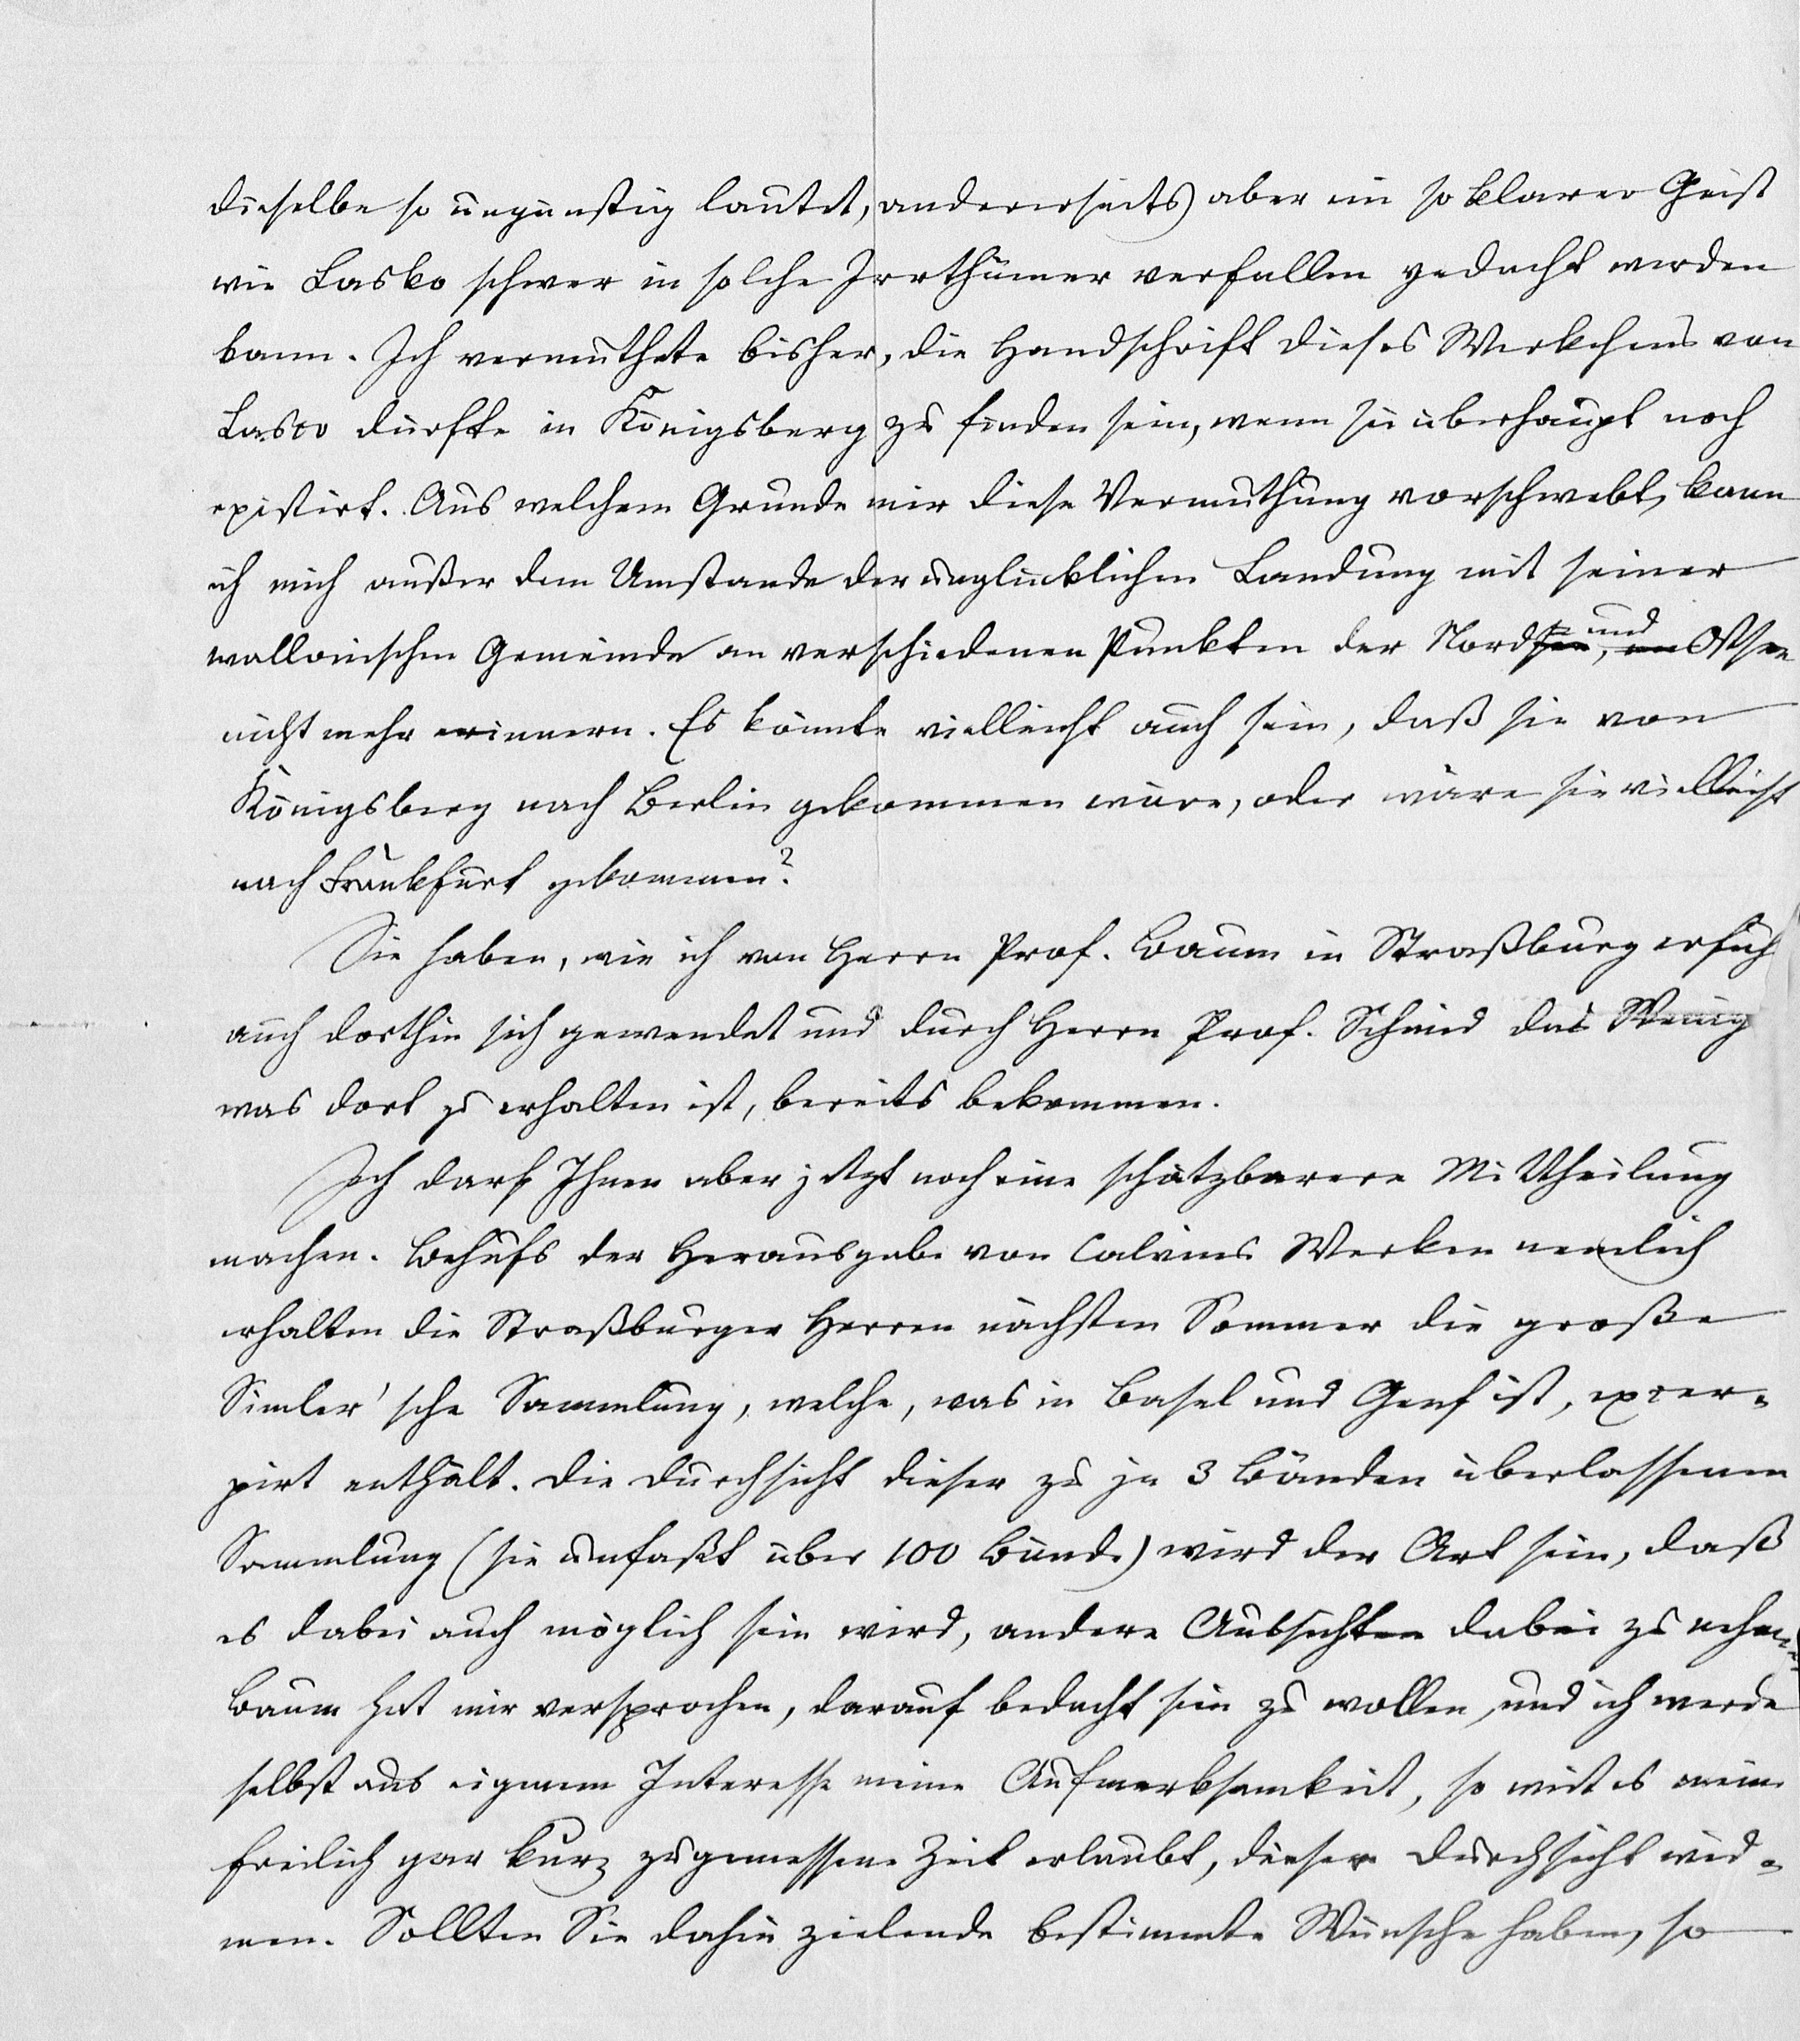 dieselbe so ungünstig lautet, andererseits aber ein so klarer Geist
wie Lasko schwer in solche Irrthümer verfallen gedacht werden
kann. Ich vermuthete bisher, die Handschrift dieses Werkchens von
Lasco dürfte in Königsberg zu finden sein, wenn sie überhaupt noch
existirt. Aus welchem Grunde mir diese Vermuthung vorschwebt, kann
ich mich außer dem Umstande der unglücklichen Landung mit seiner
wallonischen Gemeinde an verschiedenen Punkten der Nord= und Ostsee
nicht mehr erinnern. Es könnte vielleicht auch sein, daß sie von
Königsberg nach Berlin gekommen wäre, oder wäre sie vielleicht
nach Frankfurt gekommen?
Sie haben, wie ich von Herrn Prof. Baum in Straßburg erfuh
auch dorthin sich gewendet und durch Herrn Prof. Schmid das Wenig
was dort zu erhalten ist, bereits bekommen.
Ich darf Ihnen aber jetzt noch eine schätzbarere Mittheilung
machen. Behufs der Herausgabe von Calvins Werken nemlich
erhalten die Straßburger Herren nächsten Sommer die große
Simler'sche Sammlung, welche, was in Basel und Genf ist, excer=
pirt enthält. Die Durchsicht dieser zu je 3 Bänden überlassenen
Sammlung (sie umfaßt über 100 Bände) wird der Art sein, daß
es dabei auch möglich sein wird, andere Absichten dabei zu nehmen
Baum hat mir versprochen, darauf bedacht sein zu wollen, und ich werde
selbst aus eignem Interesse meine Aufmerksamkeit, so weit es meine
freilich gar kurz zugemessene Zeit erlaubt, dieser Durchsicht wid=
men. Sollten Sie dahin zielende bestimmte Wünsche haben, so